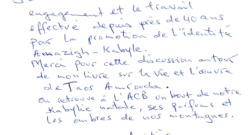 engagement et le travail
effectué depuis près de 40 ans
par la promotion de l'identité
Amazigh-Kabyle.
Merci pour cette discussion autour
de mon livre sur la vie et l'œuvre
de Taos Amrouche.
On retrouve à l'ACB un bout de notre
Kabylie natale, ses parfums et
les ombres de nos montagnes.